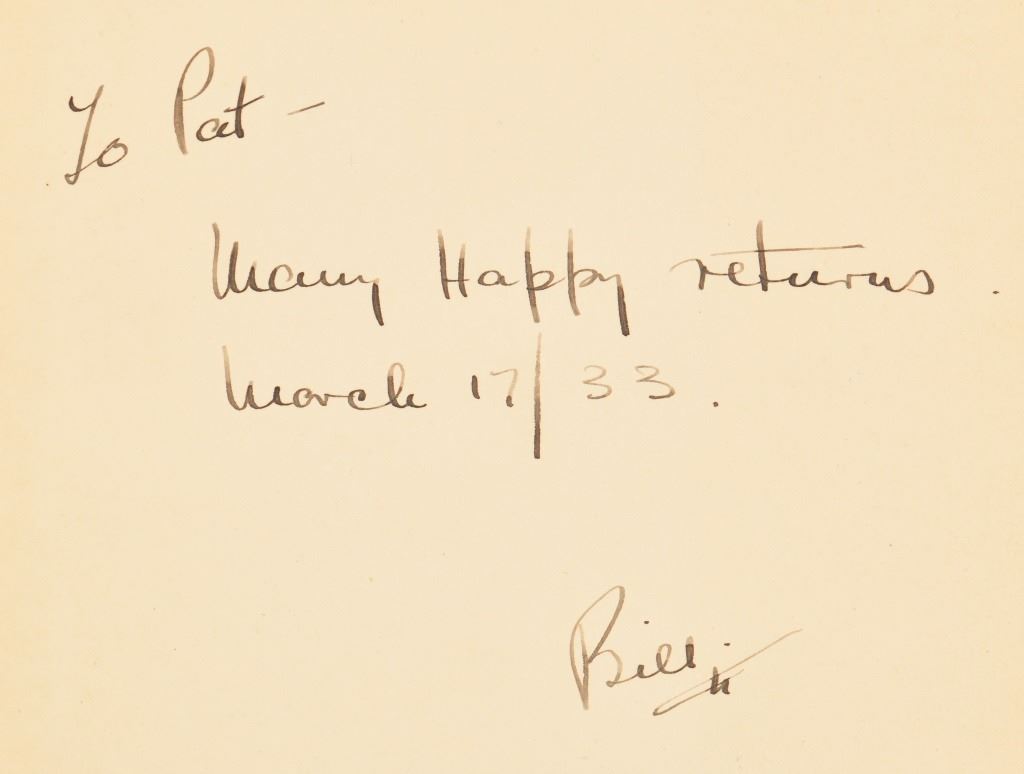 To Pat –
Many Happy returns .
March 17/33 .
Bill